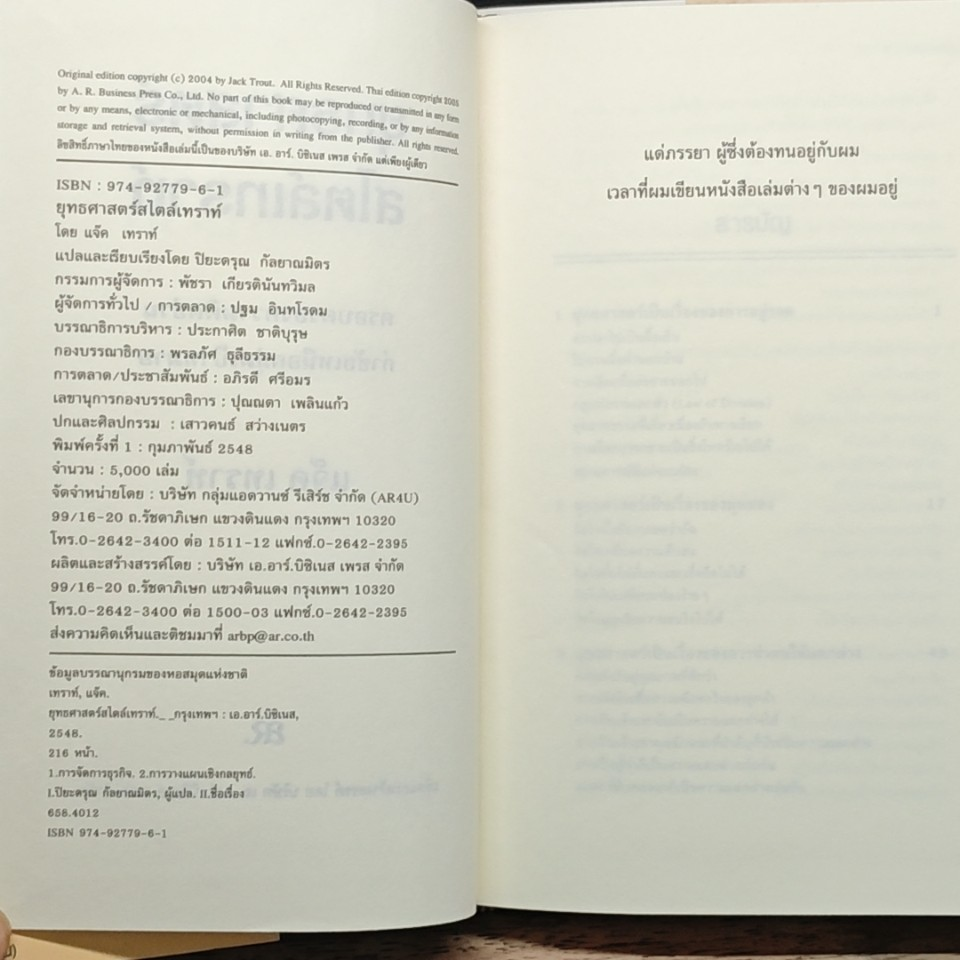 Original edition copyright (c) 2004 by Jack Trout. All Rights Reserved. Thai edition copyright 2005
by A. R. Business Press Co., Ltd. No part of this book may be reproduced or transmitted in any form
or by any means, electronic or mechanical, including photocopying, recording, or by any information
storage and retrieval system, without permission in writing from the publisher. All rights reserved.
ลิขสิทธิ์ภาษาไทยของหนังสือเล่มนี้เป็นของบริษัท เอ. อาร์. บิซิเนส เพรส จำกัด แต่เพียงผู้เดียว
ISBN : 974-92779-6-1
ยุทธศาสตร์สไตล์เทราท์
โดย แจ๊ค เทราท์
แปลและเรียบเรียงโดย ปิยะดรุณ กัลยาณมิตร
กรรมการผู้จัดการ : พัชรา เกียรตินันทวิมล
ผู้จัดการทั่วไป / การตลาด : ปฐม อินทโรดม
บรรณาธิการบริหาร : ประกาศิต ชาติบุรุษ
กองบรรณาธิการ : พรลภัศ ธุลีธรรม
การตลาด/ประชาสัมพันธ์ : อภิรดี ศรีอมร
เลขานุการกองบรรณาธิการ : ปุณณดา เพลินแก้ว
ปกและศิลปกรรม : เสาวคนธ์ สว่างเนตร
พิมพ์ครั้งที่ 1 : กุมภาพันธ์ 2548
จำนวน : 5,000 เล่ม
จัดจำหน่ายโดย : บริษัท กลุ่มแอดวานซ์ รีเสิร์ช จำกัด (AR4U)
99/16-20 ถ.รัชดาภิเษก แขวงดินแดง กรุงเทพฯ 10320
โทร.0-2642-3400 ต่อ 1511-12 แฟกซ์.0-2642-2395
ผลิตและสร้างสรรค์โดย : บริษัท เอ.อาร์.บิซิเนส เพรส จำกัด
99/16-20 ถ.รัชดาภิเษก แขวงดินแดง กรุงเทพฯ 10320
โทร.0-2642-3400 ต่อ 1500-03 แฟกซ์.0-2642-2395
ส่งความคิดเห็นและติชมมาที่ arbp@ar.co.th
ข้อมูลบรรณานุกรมของหอสมุดแห่งชาติ
เทราท์, แจ๊ค.
ยุทธศาสตร์สไตล์เทราท์._ _กรุงเทพฯ : เอ.อาร์.บิซิเนส,
2548.
216 หน้า.
1.การจัดการธุรกิจ. 2.การวางแผนเชิงกลยุทธ์.
I.ปิยะดรุณ กัลยาณมิตร, ผู้แปล. II.ชื่อเรื่อง
658.4012
ISBN 974-92779-6-1
แด่ภรรยา ผู้ซึ่งต้องทนอยู่กับผม
เวลาที่ผมเขียนหนังสือเล่มต่าง ๆ ของผมอยู่